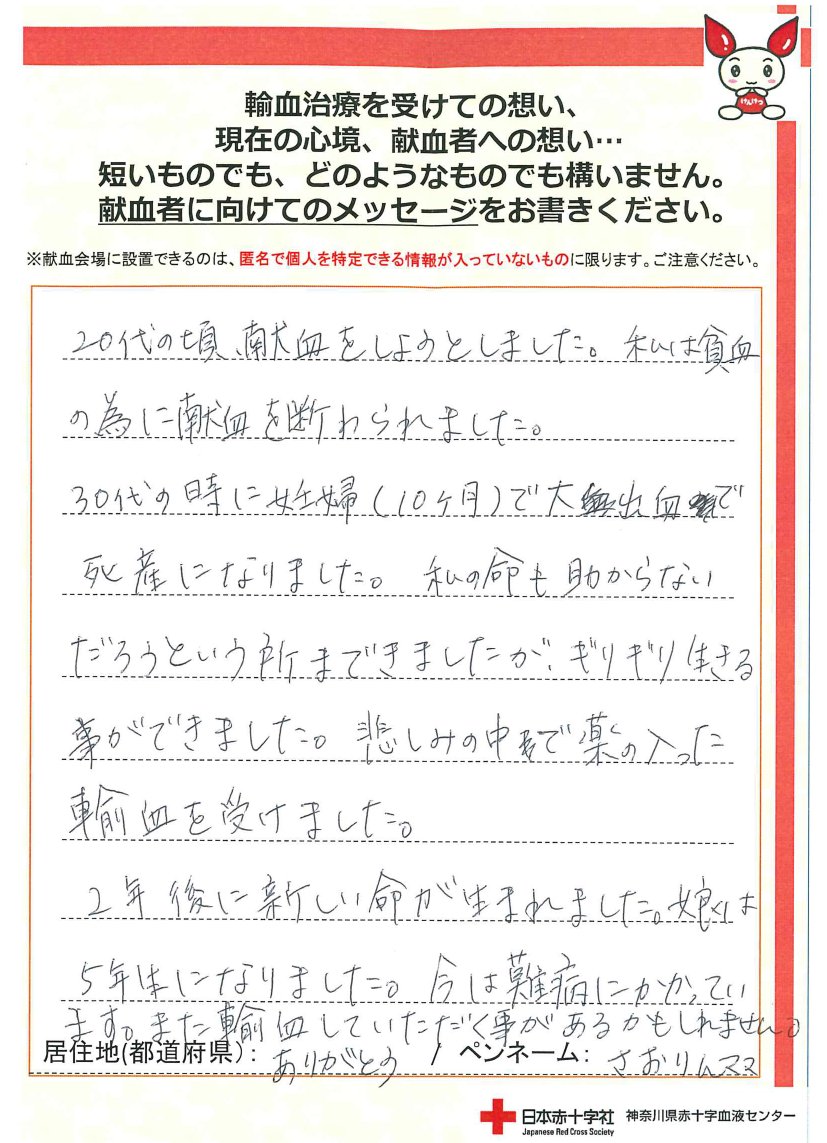 けんけつ
輸血治療を受けての想い、
現在の心境、献血者への想い…
短いものでも、どのようなものでも構いません。
献血者に向けてのメッセージをお書きください。
※献血会場に設置できるのは、匿名で個人を特定できる情報が入っていないものに限ります。ご注意ください。
20代の頃、献血をしようとしました。私は貧血
の為に献血を断わられました。
30代の時に妊婦(10ヶ月)で大出血で
死産になりました。私の命も助からない
だろうという所まできましたが、ギリギリ生きる
事ができました。悲しみの中で薬の入った
輸血を受けました。
2年後に新しい命が生まれました。娘は
5年生になりました。今は難病にかかってい
ます。また輸血していただく事があるかもしれません。
居住地(都道府県): ありがとう / ペンネーム: さおりんママ
日本赤十字社 神奈川県赤十字血液センター
Japanese Red Cross Society